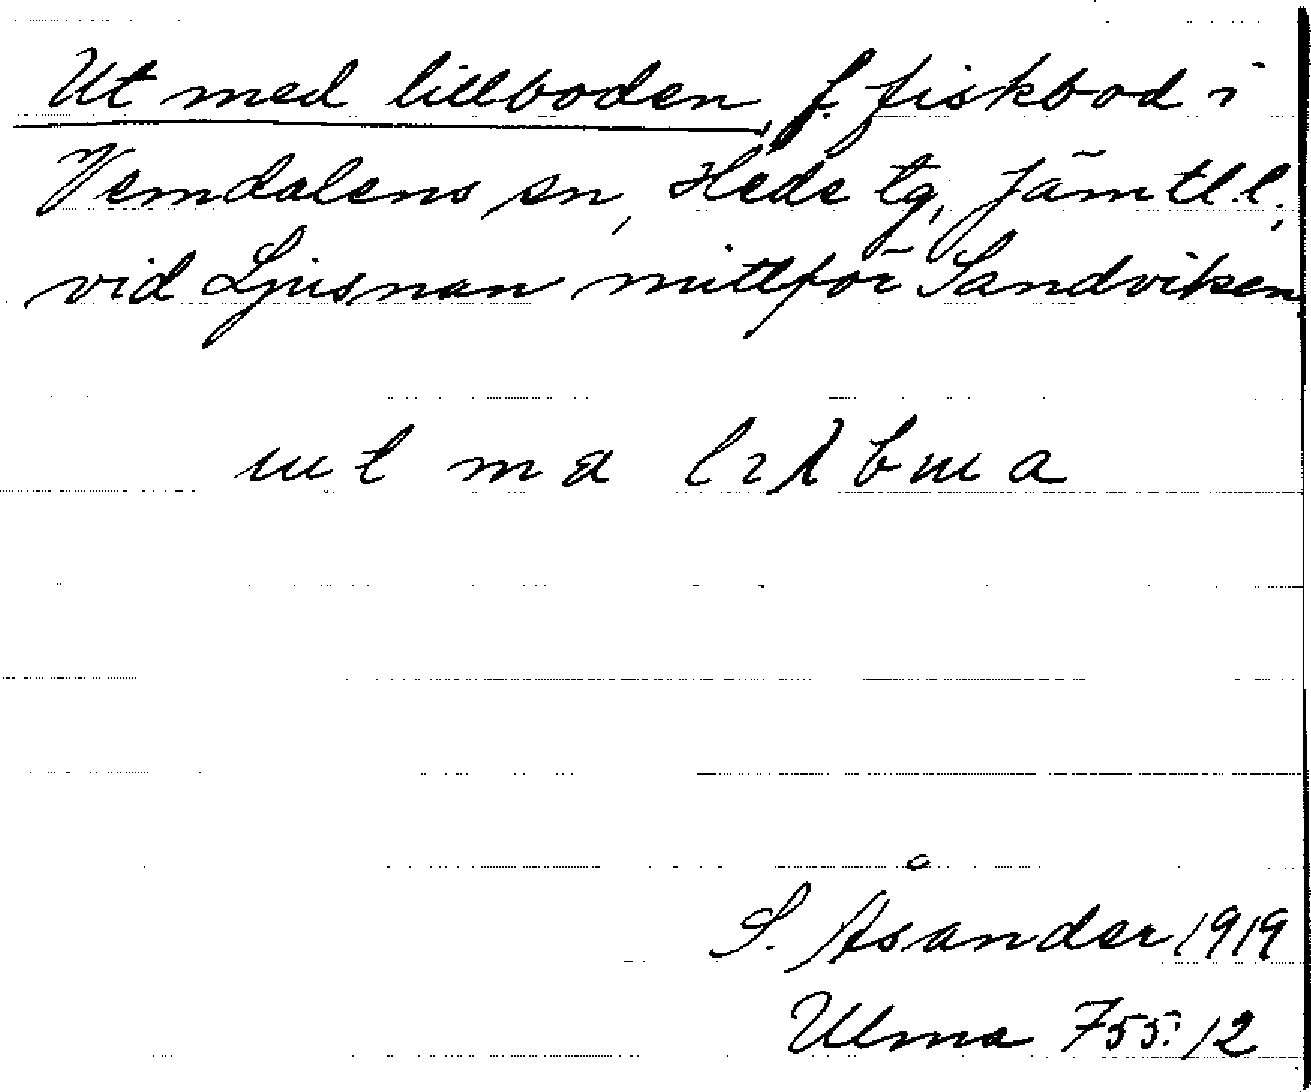 Ut med lillboden, f. fiskbod i
Vemdalens sn, Hede tg, Jämtl.l.
vid Ljusnan mittför Sandviken
ut ma
S. Åsander 1919
Ulma 755:12